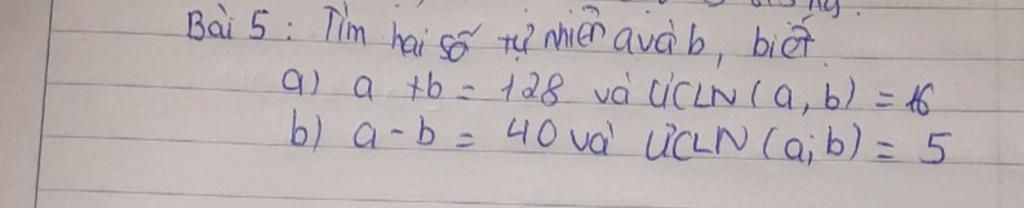 Bài 5 : Tìm hai số tự nhiên a và b, biết
a) a + b = 128 và ƯCLN (a, b) = 16
b) a - b = 40 và ƯCLN (a; b) = 5